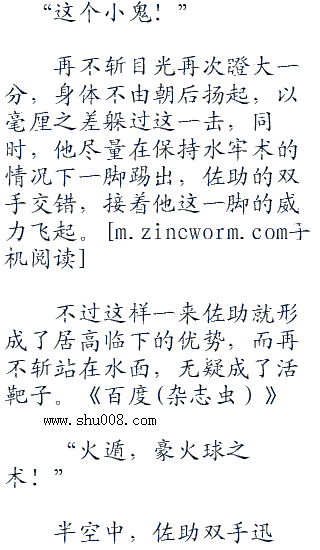 “这个小鬼！”
再不斩目光再次瞪大一
分，身体不由朝后扬起，以
毫厘之差躲过这一击，同
时，他尽量在保持水牢术的
情况下一脚踢出，佐助的双
手交错，接着他这一脚的威
力飞起。[m.zincworm.com手
机阅读]
不过这样一来佐助就形
成了居高临下的优势，而再
不斩站在水面，无疑成了活
靶子。《百度(杂志虫)》
www.shu008.com
“火遁，豪火球之
术！”
半空中，佐助双手迅